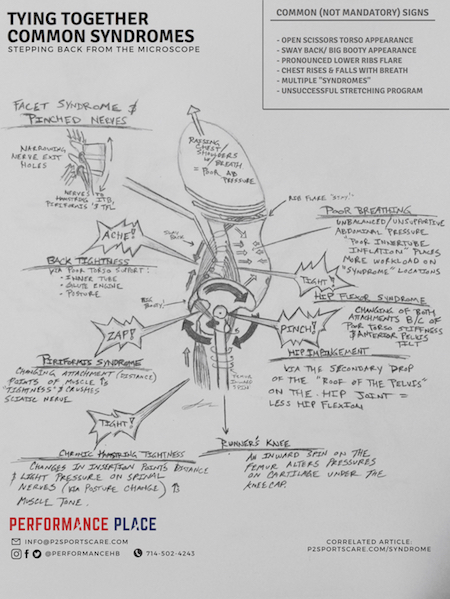 TYING TOGETHER
COMMON SYNDROMES
STEPPING BACK FROM THE MICROSCOPE
COMMON (NOT MANDATORY) SIGNS
- OPEN SCISSORS TORSO APPEARANCE
- SWAY BACK/ BIG BOOTY APPEARANCE
- PRONOUNCED LOWER RIBS FLARE
- CHEST RISES & FALLS WITH BREATH
- MULTIPLE "SYNDROMES"
- UNSUCCESSFUL STRETCHING PROGRAM
FACET SYNDROME &
PINCHED NERVES
NARROWING
NERVE EXIT
HOLES
NERVES TO
HAMSTRING, ITB,
PIRIFORMIS & TFL
RAISING
CHEST/
SHOULDERS
W/ BREATH
= POOR AB
PRESSURE
RIB FLARE "STUY"
POOR BREATHING
UNBALANCED/UNSUPPORTIVE
ABDOMINAL PRESSURE
"POOR INNERTUBE
INFLATION" PLACES
MORE WORKLOAD ON
"SYNDROME" LOCATIONS
ACHE!
SWAY
BACK
BACK TIGHTNESS
VIA POOR TORSO SUPPORT:
- INNER TUBE
- GLUTE ENGINE
- POSTURE
BIG
BOOTY!
TIGHT!
HIP FLEXOR SYNDROME
CHANGING OF BOTH
ATTACHMENTS B/C OF
POOR TORSO STIFFNESS
& ANTERIOR PELVIS
TILT
ZAP!
PINCH!
PIRIFORMIS SYNDROME
CHANGING ATTACHMENT (DISTANCE)
POINTS OF MUSCLE ↑'S
"TIGHTNESS" & CRUSHES
SCIATIC NERVE.
HIP IMPINGEMENT
VIA THE SECONDARY DROP
OF THE "ROOF OF THE PELVIS"
ON THE HIP JOINT =
LESS HIP FLEXION
FEMUR
INWARD
SPIN
TIGHT!
CHRONIC HAMSTRING TIGHTNESS
CHANGES IN INSERTION POINTS DISTANCE
& LIGHT PRESSURE ON SPINAL
NERVES (VIA POSTURE CHANGE) ↑'S
MUSCLE TONE.
RUNNER'S KNEE
AN INWARD SPIN ON THE
FEMUR ALTERS PRESSURES
ON CARTILAGE UNDER THE
KNEECAP.
PERFORMANCE PLACE
INFO@P2SPORTSCARE.COM
@PERFORMANCEHB 714-502-4243
CORRELATED ARTICLE:
P2SPORTSCARE.COM/SYNDROME